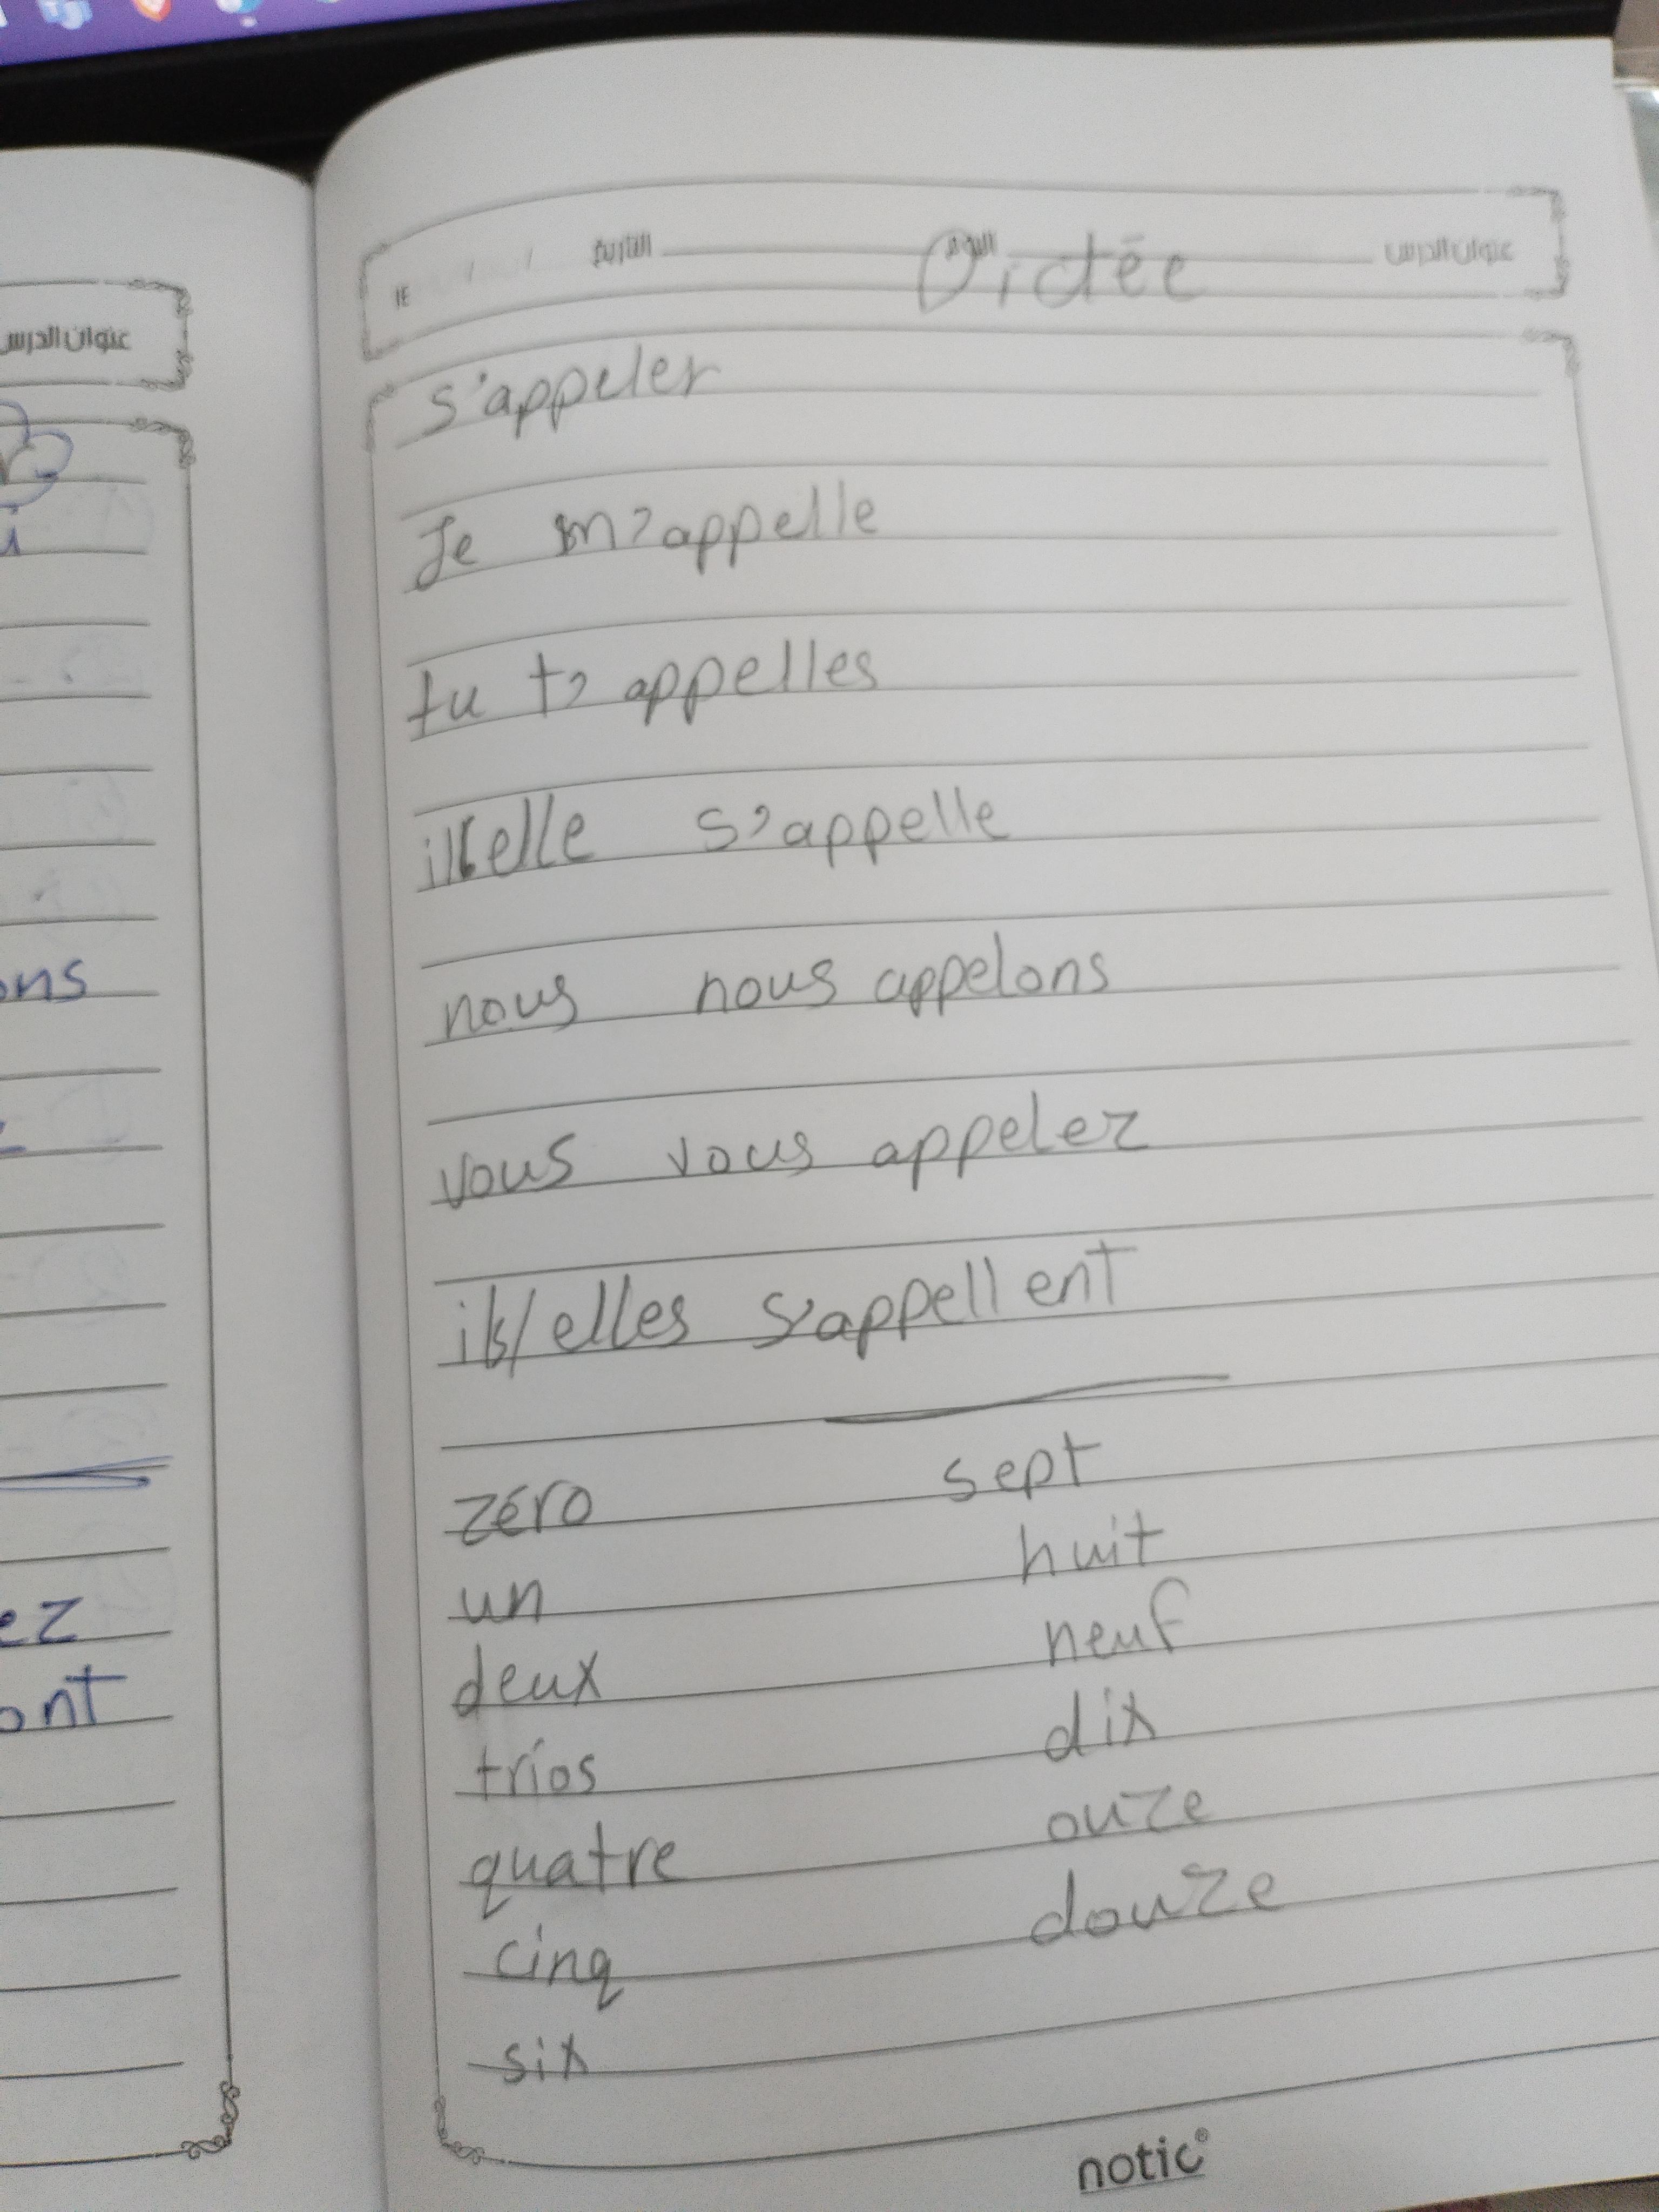 عنوان الدرس
اليوم
التاريخ / / ١٤
Dictée
s'appeler
Je m'appelle
tu t'appelles
il/elle s'appelle
nous nous appelons
vous vous appelez
ils/elles s'appellent
zéro
un
deux
trios
quatre
cinq
six
sept
huit
neuf
dix
ouze
douze
notic
عنوان الدرس
ons
ez
ont